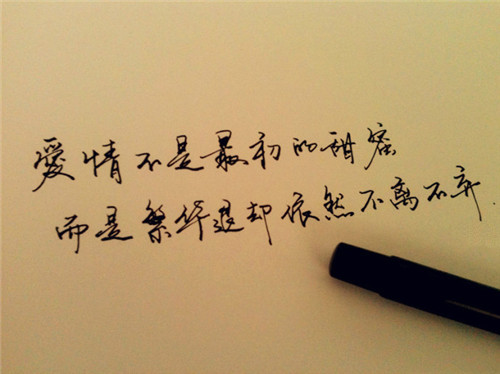 愛情不是最初的甜蜜
而是繁华退却依然不离不弃.